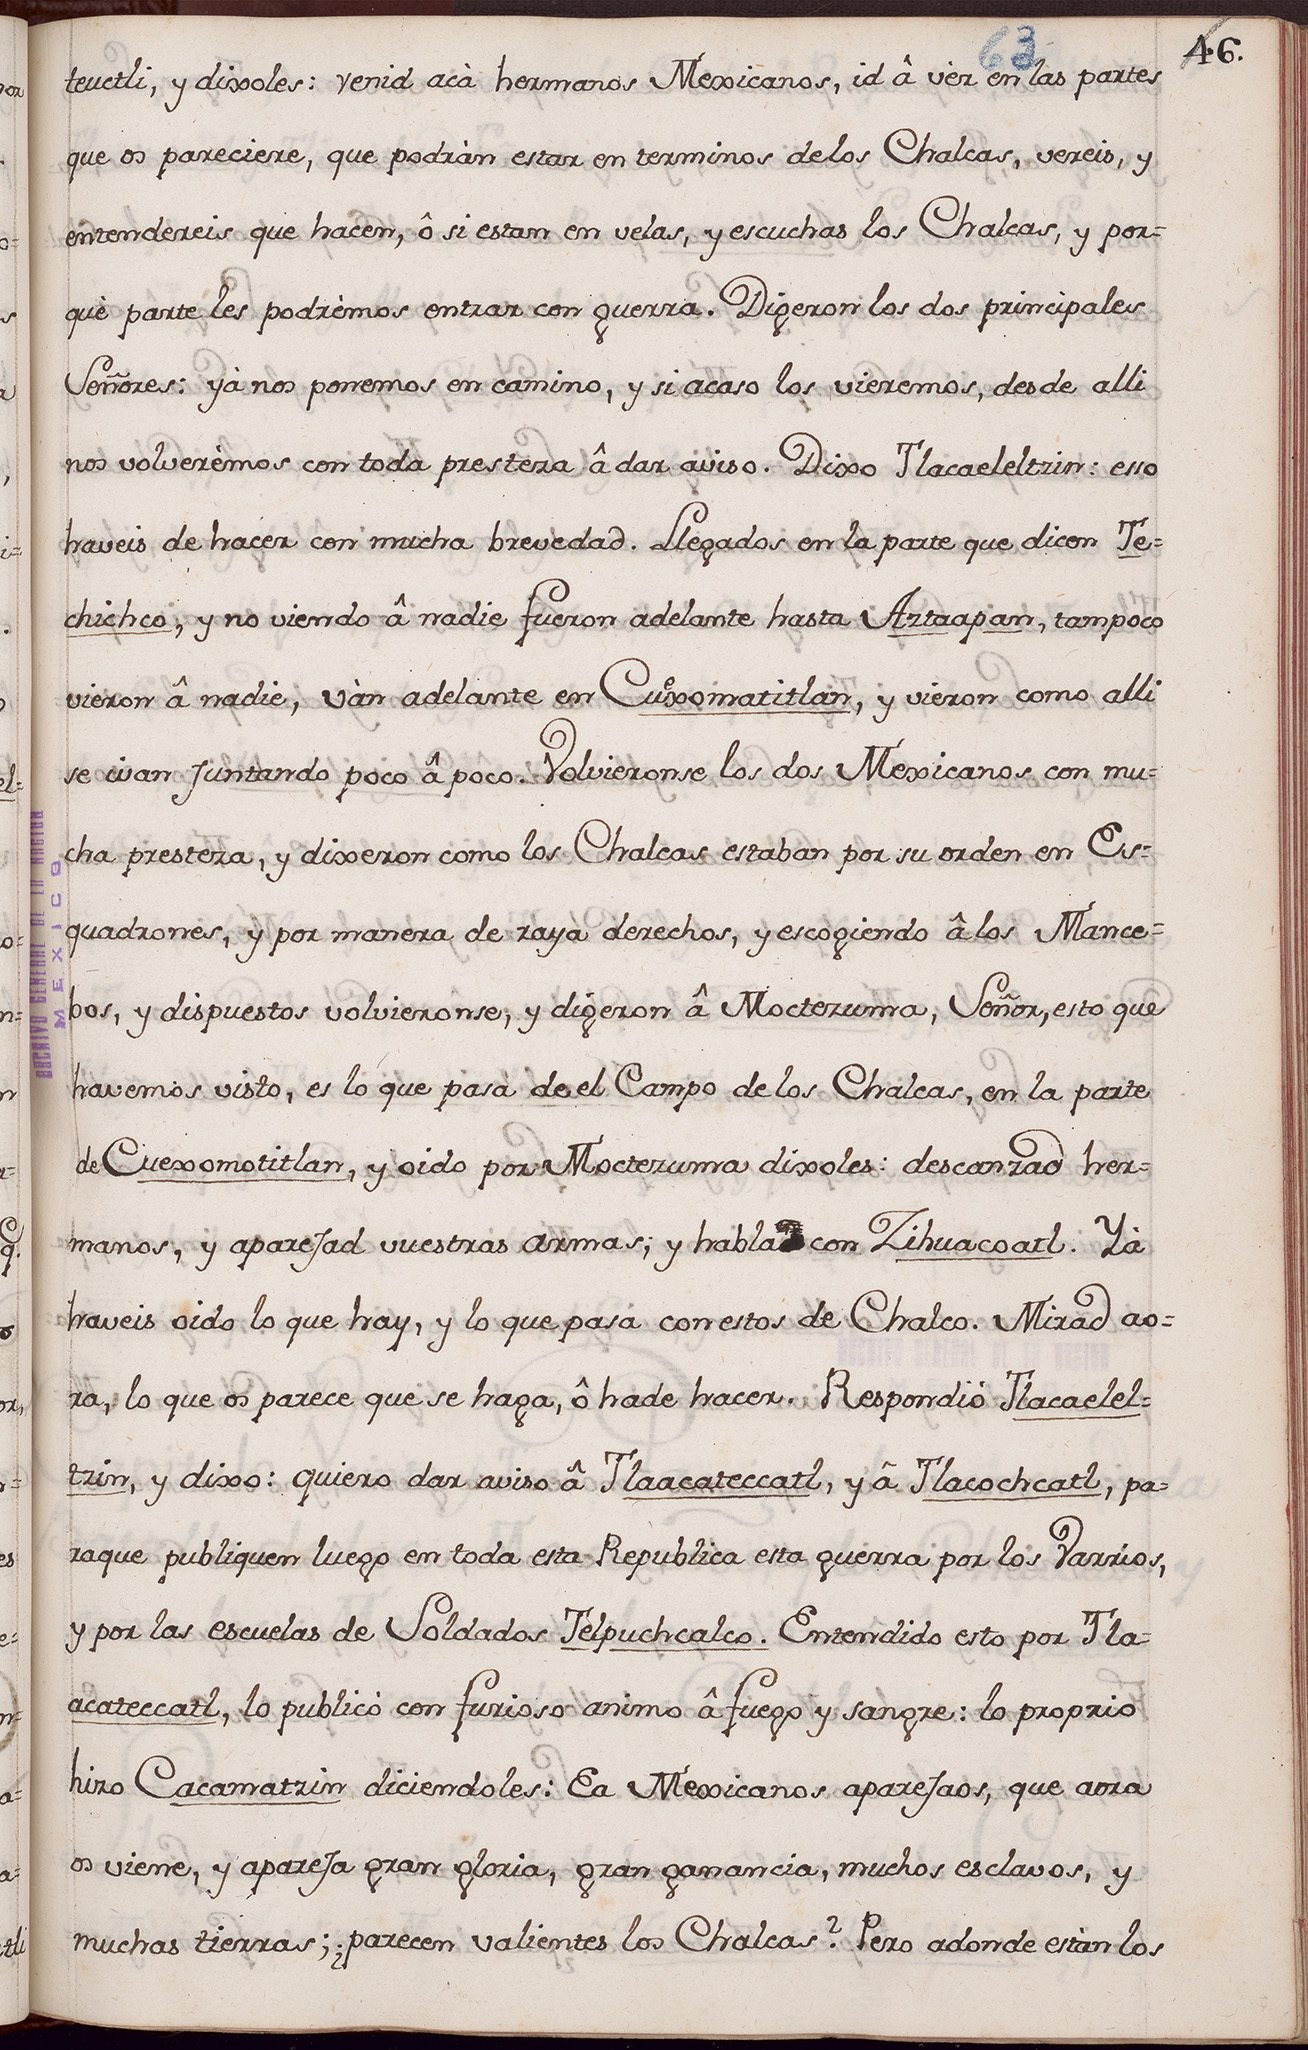 63
46.
teuctli, y dixoles: venid acà hermanos Mexicanos, id â vèr en las partes
que os pareciere, que podràn estar en terminos delos Chalcas, vereis, y
entendereis que hacen, ô si estan en velas, y escuchas los Chalcas, y por=
què parte les podrèmos entrar con guerra. Digeron los dos principales
Señores: yà nos ponemos en camino, y si acaso los vieremos, desde alli
nos volverèmos con toda presteza â dar aviso. Dixo Tlacaeleltzin: esso
haveis de hacer con mucha brevedad. Llegados en la parte que dicen Te=
chichco, y no viendo â nadie fueron adelante hasta Aztaapan, tampoco
vieron â nadie, vàn adelante en Cuexomatitlan, y vieron como alli
se ivan juntando poco â poco. Volvieronse los dos Mexicanos con mu=
cha presteza, y dixeron como los Chalcas estaban por su orden en Es=
quadrones, y por manera de raya derechos, y escogiendo â los Mance=
bos, y dispuestos volvieronse, y digeron â Moctezuma, Señor, esto que
havemos visto, es lo que pasa de el Campo de los Chalcas, en la parte
de Cuexomotitlan, y oido por Moctezuma dixoles: descanzad her=
manos, y aparejad vuestras armas; y hablad con Zihuacoatl. Yà
haveis oido lo que hay, y lo que pasa con estos de Chalco. Mirad ao=
ra, lo que os parece que se haga, ô hade hacer. Respondiò Tlacaelel=
tzin, y dixo: quiero dar aviso â Tlaacateccatl, y â Tlacochcatl, pa=
raque publiquen luego en toda esta Republica esta guerra por los Varrios,
y por las escuelas de Soldados Telpuchcalco. Entendido esto por Tla=
acateccatl, lo publicò con furioso animo â fuego y sangre: lo proprio
hizo Cacamatzin diciendoles: Ea Mexicanos aparejaos, que aora
os viene, y apareja gran gloria, gran ganancia, muchos esclavos, y
muchas tierras; ¿parecen valientes los Chalcas? Pero adonde estàn los
ARCHIVO GENERAL DE LA NACION
MEXICO